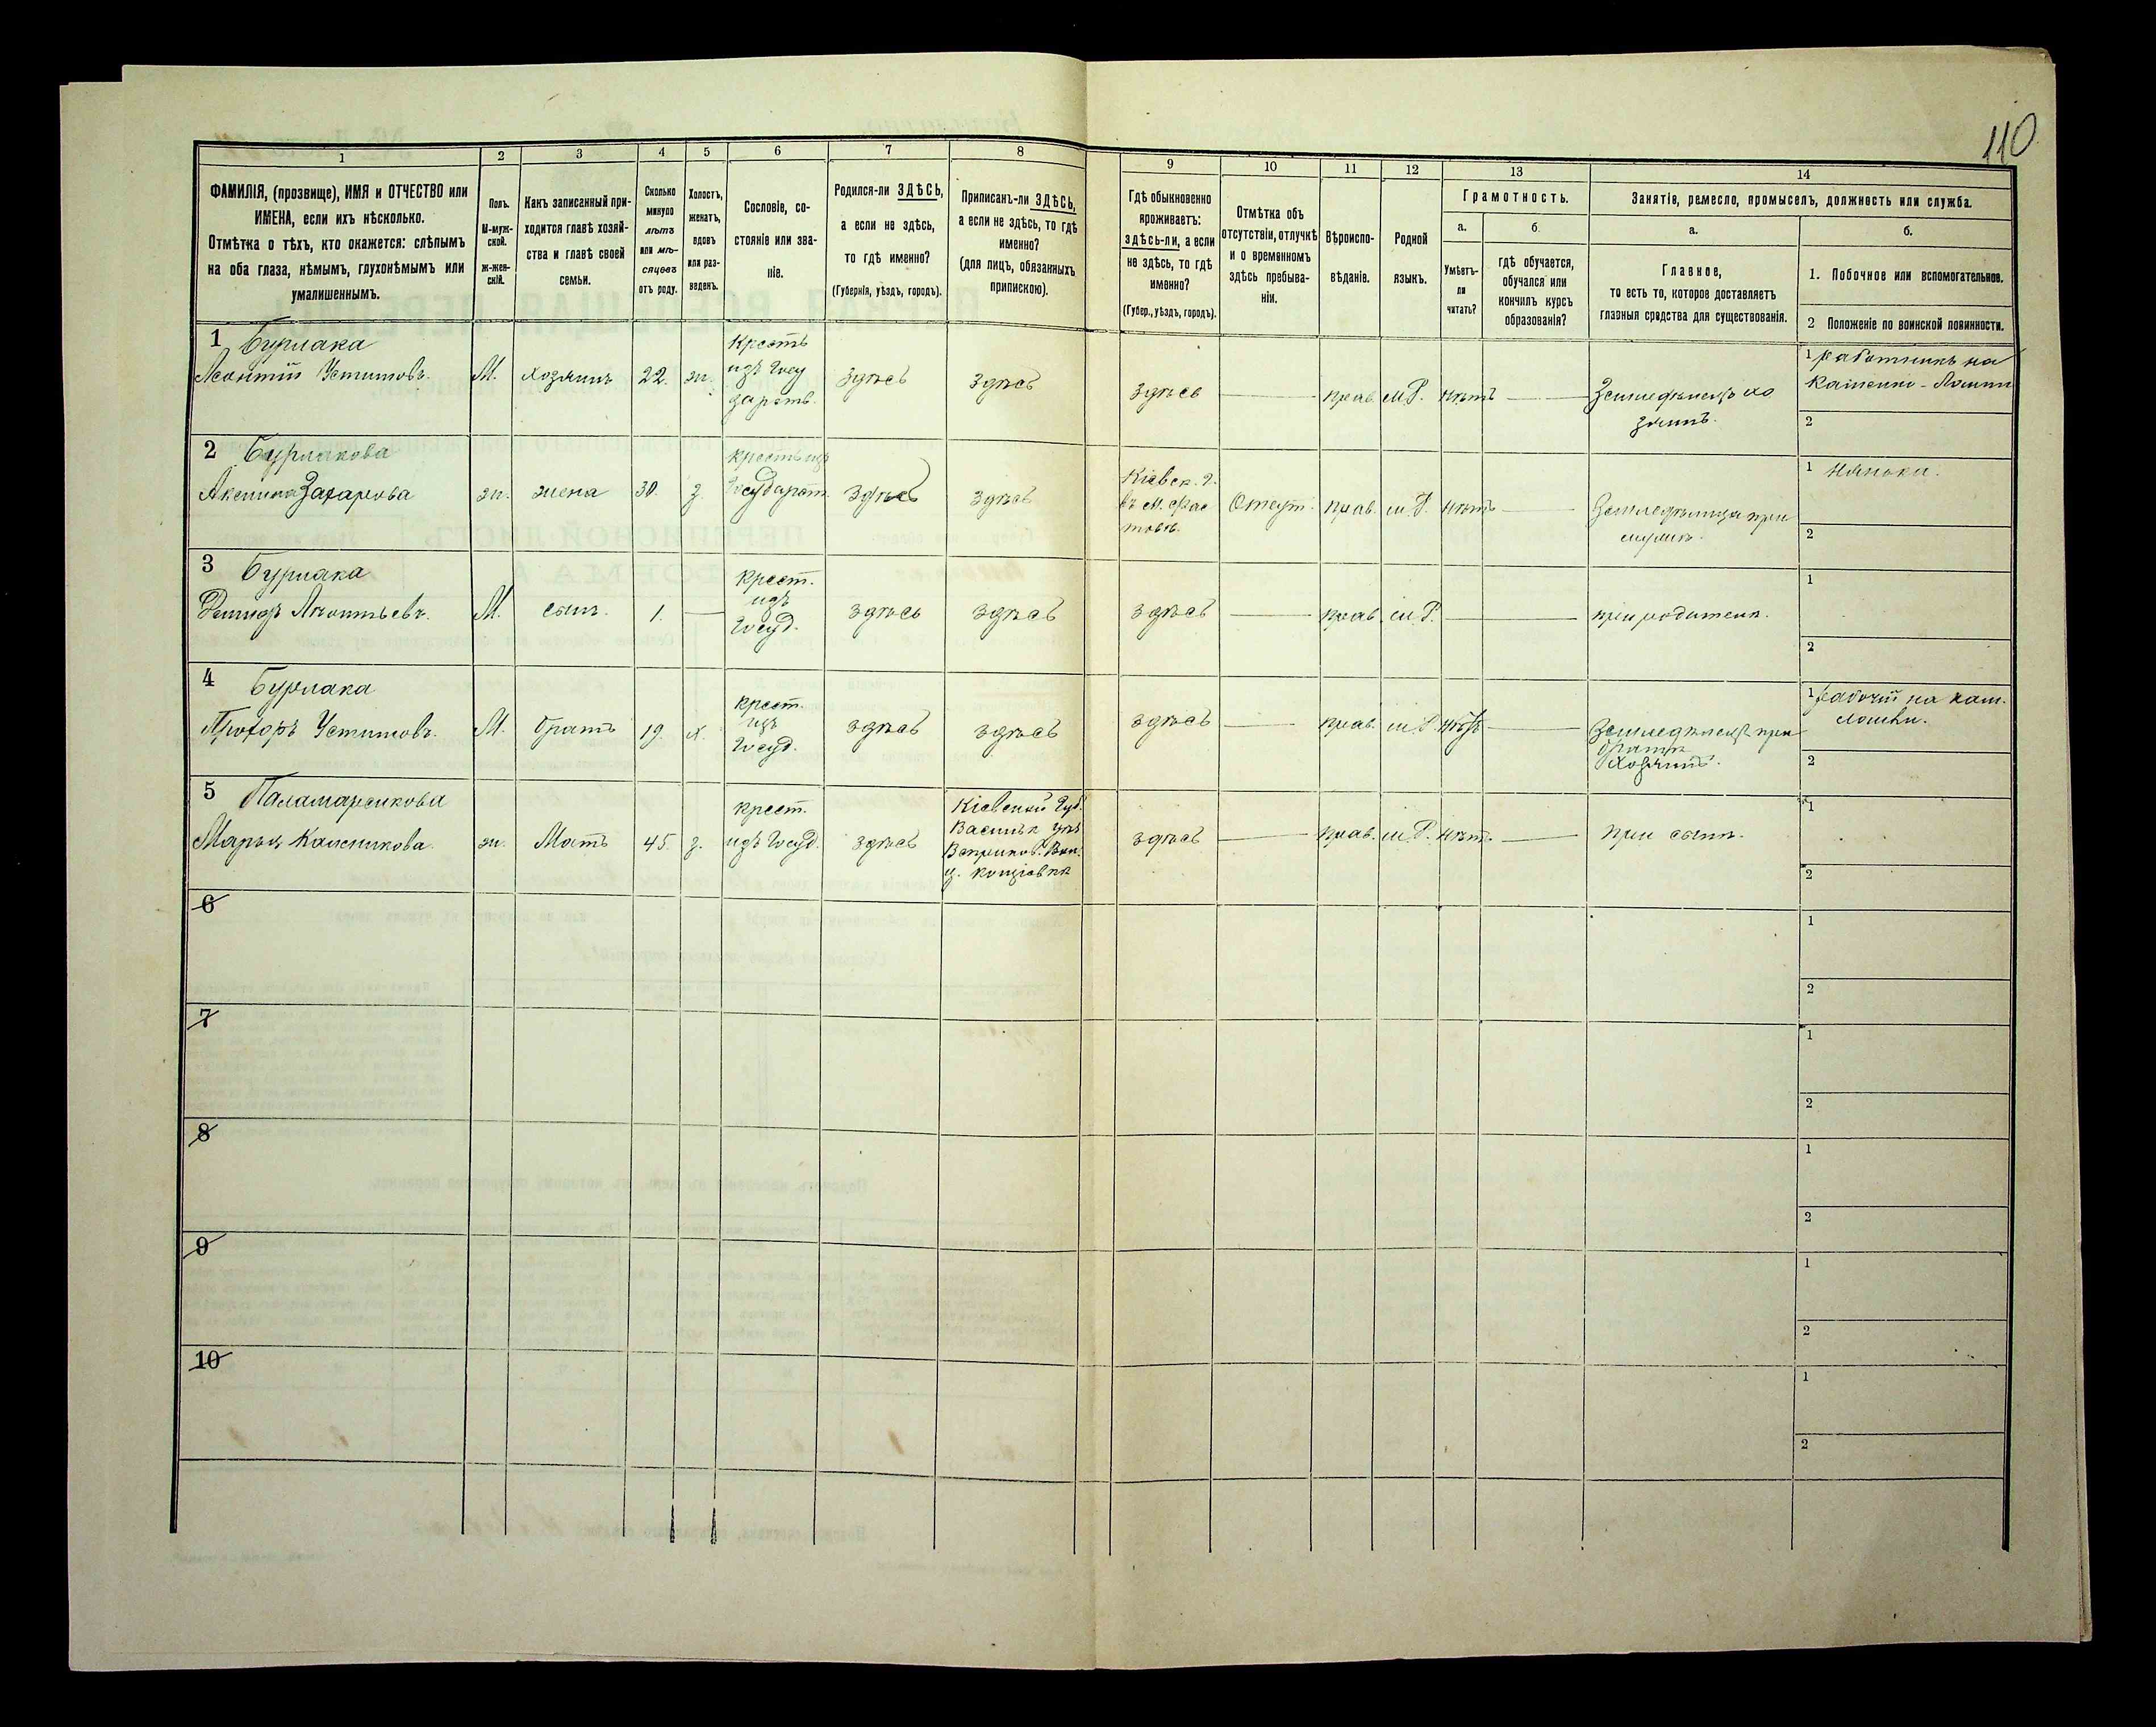 110
1 2 3 4 5 6 7 8 9 10 11 12 13 14
ФАМИЛІЯ, (прозвище), ИМЯ и ОТЧЕСТВО или
ИМЕНА, если ихъ нѣсколько.
Отмѣтка о тѣхъ, кто окажется: слѣпымъ
на оба глаза, нѣмымъ, глухонѣмымъ или
умалишеннымъ.
Полъ.
М-муж-
ской.
ж-жен-
скій.
Какъ записанный при-
ходится главѣ хозяй-
ства и главѣ своей
семьи.
Сколько
минуло
лѣтъ
или мѣ-
сяцевъ
отъ роду.
Холостъ,
женатъ,
вдовъ
или раз-
веденъ.
Сословіе, со-
стояніе или зва-
ніе.
Родился-ли ЗДѢСЬ,
а если не здѣсь,
то гдѣ именно?
(Губернія, уѣздъ, городъ).
Приписанъ-ли ЗДѢСЬ,
а если не здѣсь, то гдѣ
именно?
(для лицъ, обязанныхъ
припискою).
Гдѣ обыкновенно
проживаетъ:
здѣсь-ли, а если
не здѣсь, то гдѣ
именно?
(Губер., уѣздъ, городъ).
Отмѣтка объ
отсутствіи, отлучкѣ
и о временномъ
здѣсь пребыва-
ніи.
Вѣроиспо-
вѣданіе.
Родной
языкъ.
Грамотность.
а.
Умѣетъ-
ли
читать?
б.
гдѣ обучается,
обучался или
кончилъ курсъ
образованія?
Занятіе, ремесло, промыселъ, должность или служба.
а.
Главное,
то есть то, которое доставляетъ
главныя средства для существованія.
б.
1. Побочное или вспомогательное.
2 Положеніе по воинской повинности.
1 Бурлака
Леонтій Устимовъ. М. хозяинъ 22. ж.
Крестъ
изъ Госу
дарств.
Здѣсь здѣсь здѣсь — прав. М.Р. нѣтъ —
Земледѣлецъ хо
зяинъ.
1 работникъ на
2
2 Бурлакова
Аксинья Захарова ж. жена 30. з.
крестъ изъ
Государст.
здѣсь здѣсь
Кіевск. г.
въ м. Фас
товѣ.
Отсут. прав. м.Р. нѣтъ —
Земледѣлица при
мужѣ.
1 Нянька.
2
3 Бурлака
Демидъ Леонтьевъ. М. сынъ. 1. —
крест.
изъ
Госуд.
здѣсь здѣсь здѣсь — прав. м.Р. — при родителѣ.
1
2
4 Бурлака
Прохоръ Устимовъ. М. братъ 19. х.
крест.
изъ
Госуд.
здѣсь здѣсь здѣсь — прав. м.Р. нѣтъ —
Земледѣлецъ при
братѣ
хозяинѣ.
1 Рабочій на кам.
ломки.
2
5 Паламарчукова
Марья Калениκова. ж. Мать 45. з.
крест.
изъ Госуд.
здѣсь
Кіевской Губ.
Васильк уѣз
здѣсь — прав. м.Р. нѣтъ — при сынѣ.
1
2
6
1
2
7
1
2
8
1
2
9
1
2
10
1
2